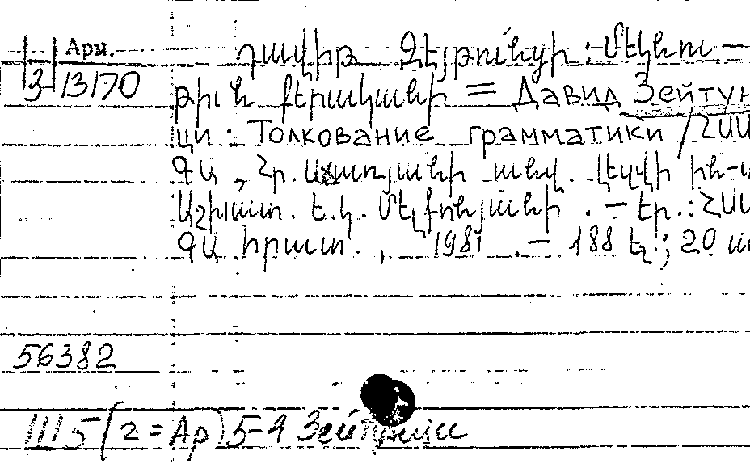 Арм.
3-13170
Դավիթ Զեյթունցի: Մեկնու-
թիւն քերականի = Давид Зейтун
ци: Толкование грамматики / ՀՍՍ
ԳԱ, Հր. Աճառյանի անվ. Լեզվի ին-
Աշխատ. Ե.Կ. Մելքոնյանի. - Եր.: ՀՍՍ
ԳԱ հրատ., 1981. - 188 էջ; 20 ս
56382
Ш5(2=Ар)5-4 Зейтунци